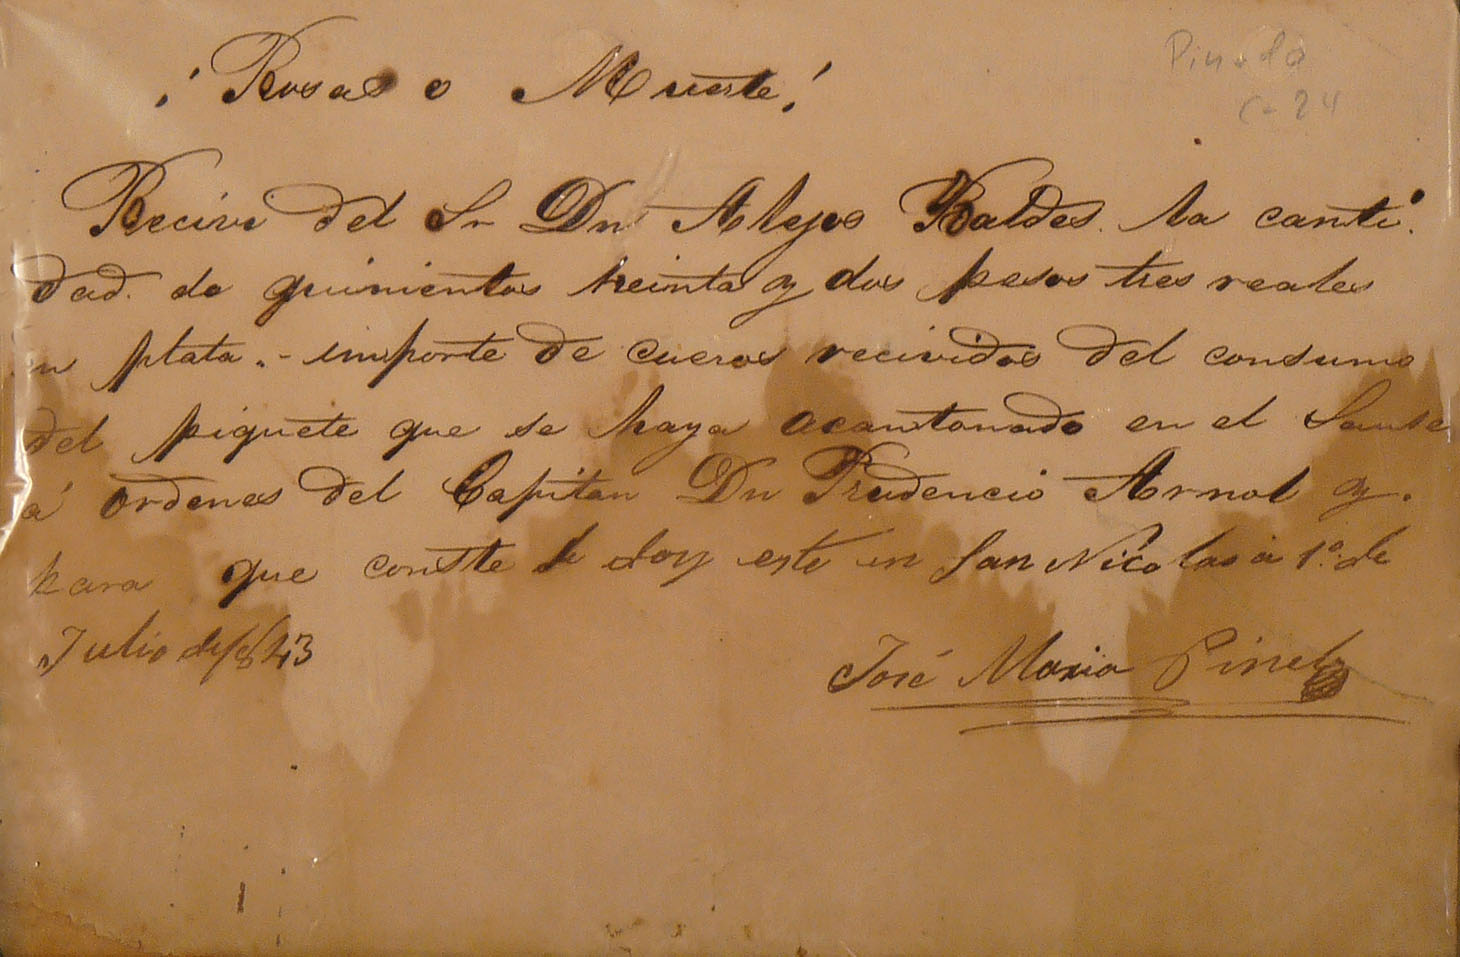 ¡Rosas o Muerte!
Pineda
C-24
Recivi del Sr Dn Alejos Baldes. la canti.
dad. de quinientos treinta y dos pesos tres reales
en plata.- importe de cueros recividos del consumo
del piquete que se haya acantonado en el Sause
á ordenes del Capitan Dn Prudencio Arnol y.
para que conste le doy este en San Nicolas à 1º. de
Julio de 1843
José Maria Pineda